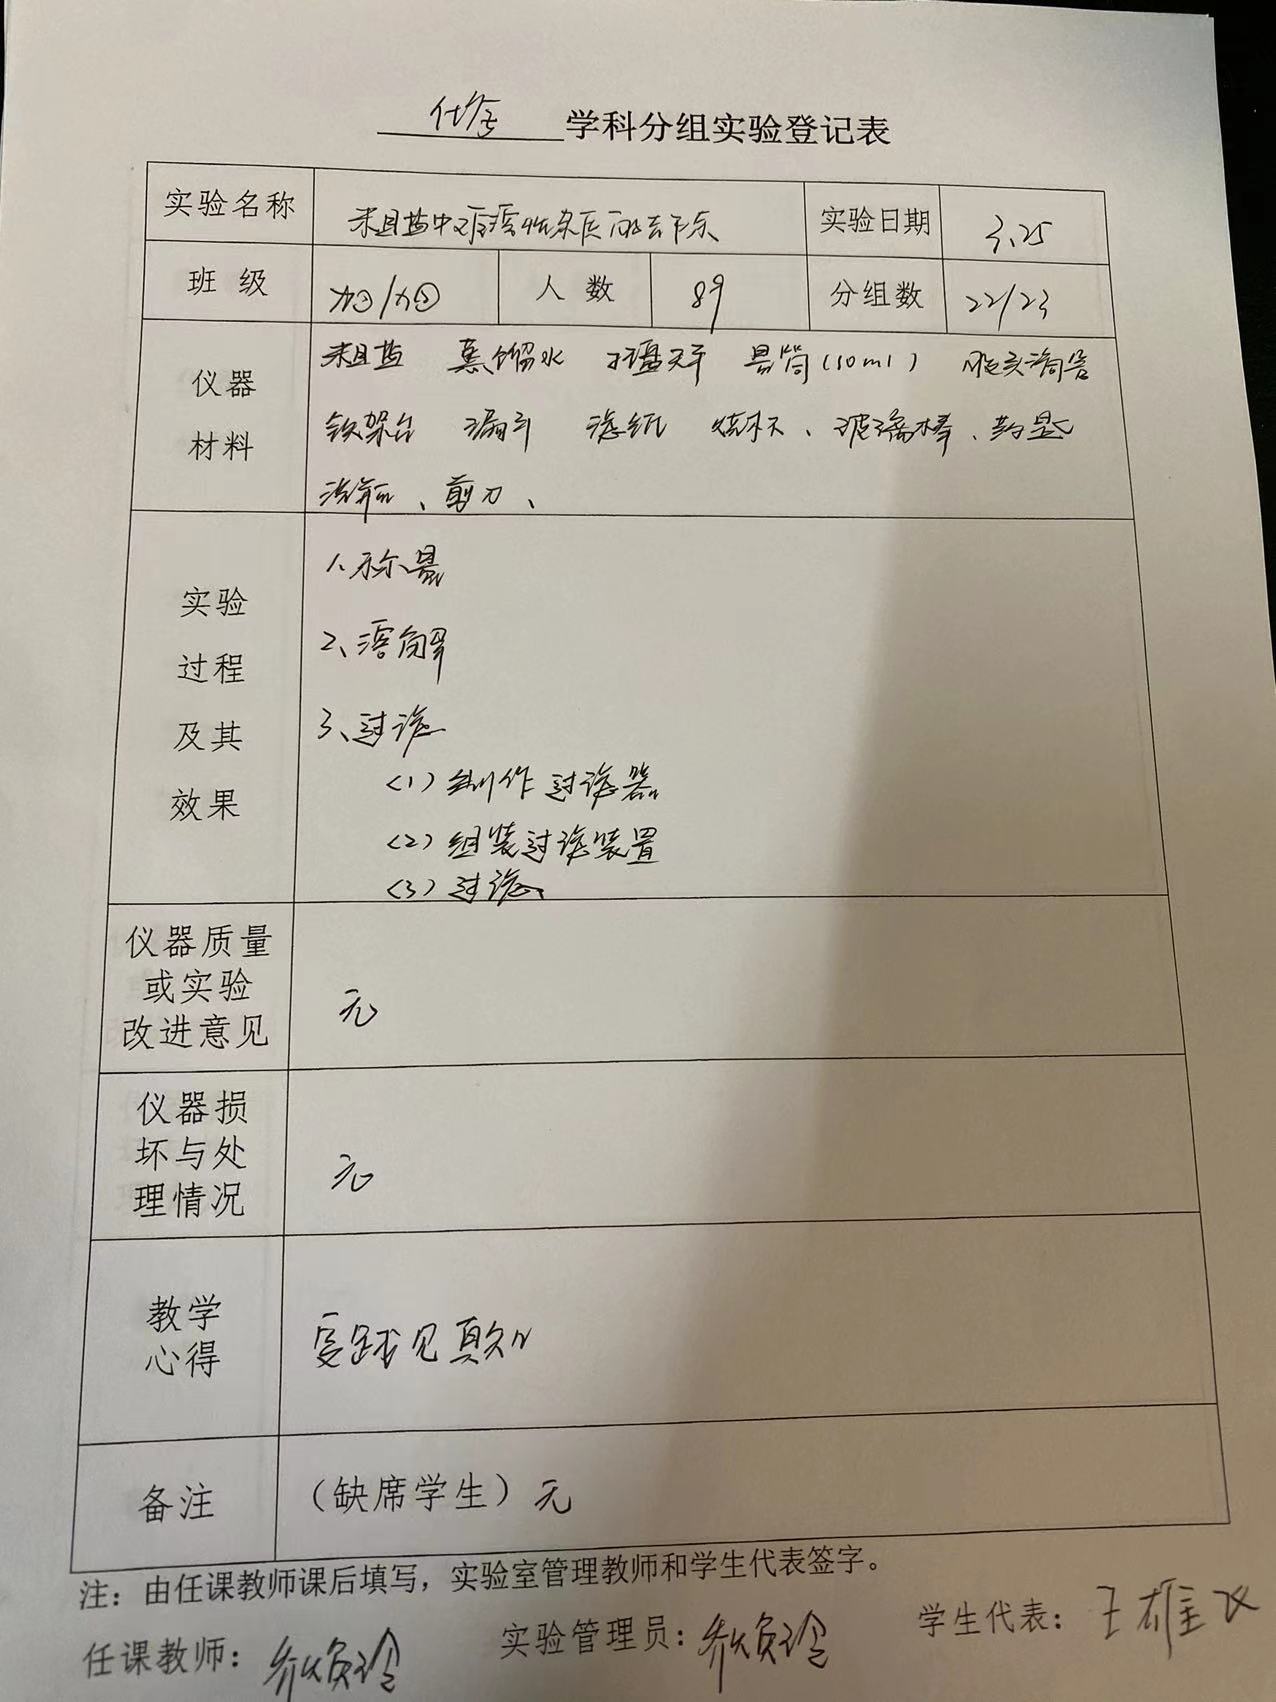 化学 学科分组实验登记表
实验名称 粗盐中难溶性杂质的去除 实验日期 3.25
班 级 人 数 89 分组数 22/23
仪器
材料
粗盐 蒸馏水 托盘天平 量筒(10ml) 胶头滴管
铁架台 漏斗 滤纸 烧杯、玻璃棒、药匙
剪刀、
实验
过程
及其
效果
1、称量
2、溶解
3、过滤
(1) 制作过滤器
(2) 组装过滤装置
(3) 过滤
仪器质量
或实验
改进意见
无
仪器损
坏与处
理情况
无
教学
心得
实践见真知
备注 (缺席学生) 无
注：由任课教师课后填写，实验室管理教师和学生代表签字。
任课教师： 实验管理员： 学生代表：王雄